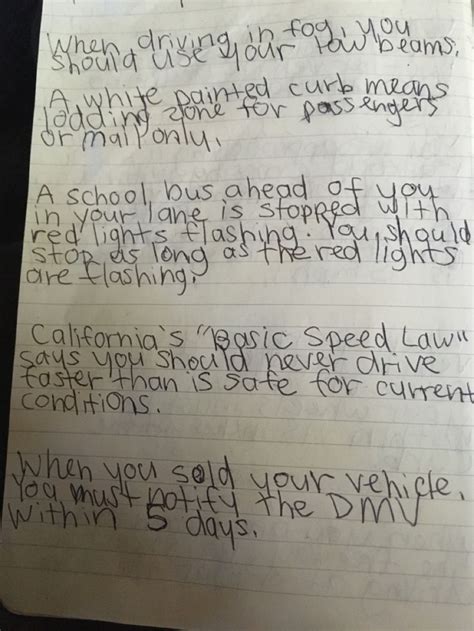 When driving in fog, you
should use your low beams.
A white painted curb means
lodding zone for passengers
or mail only.
A school bus ahead of you
in your lane is stopped with
red lights flashing. You should
stop as long as the red lights
are flashing.
California's "Basic Speed Law"
says you should never drive
faster than is safe for current
conditions.
When you sold your vehicle,
You must notify the DMV
within 5 days.